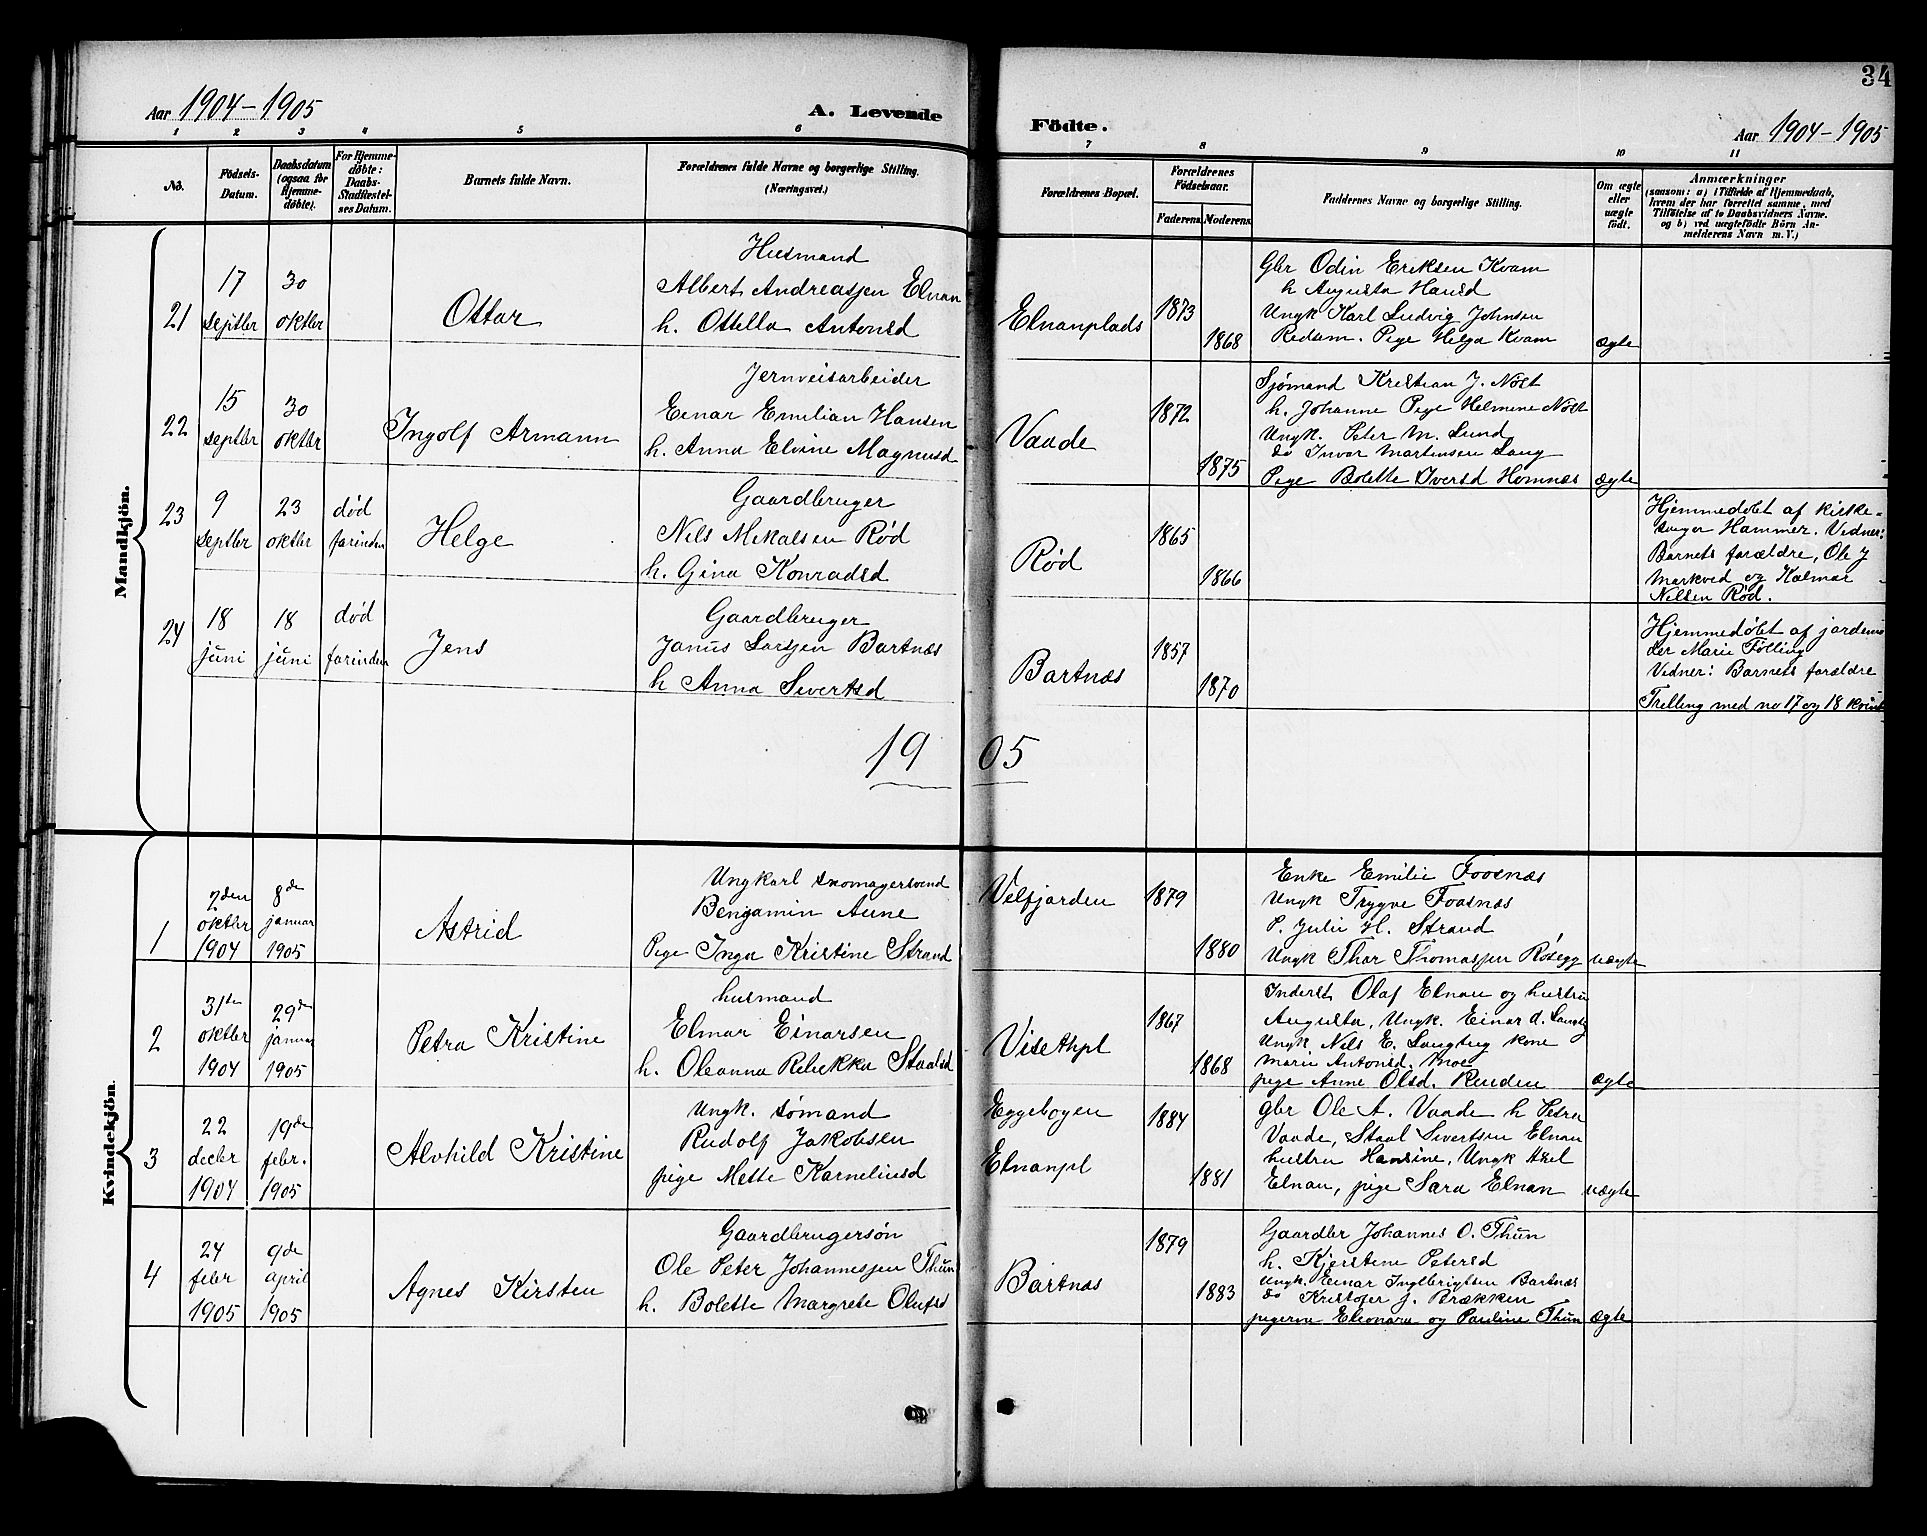 34
Aar 1904-1905
A. Levende
Födte.
Aar 1904-1905
1 2 3 4 5 6 7 8 9 10 11
No.
Födsels-
Datum.
Daabsdatum
(ogsaa for
Hjemme-
döbte).
For Hjemme-
döbte:
Daabs-
Stadfæstel-
ses Datum.
Barnets fulde Navn.
Forældrenes fulde Navne og borgerlige Stilling.
(Næringsvei.)
Forældrenes Bopæl.
Forældrenes
Födselsaar.
Faderens.
Moderens.
Faddernes Navne og borgerlige Stilling.
Om ægte
eller
uægte
födt.
Anmærkninger
(saasom: a) i Tilfælde af Hjemmedaab,
hvem der har forrettet samme, med
Tilföielse af to Daabsvidners Navne.
og b) ved uægtefödte Börn An-
melderens Navn m. V.)
Mandkjön.
21
17
septbr
30
oktbr
Ottar
Husmand
Albert Andreassen Elnan
h. Ottella Antonsd
Elnanplads
1873
1868
Gbr Odin Eriksen Kvam
h Augusta Hansd
Ungk Karl Ludvig Johnsen
Redsem. Pige Helga Kvam
ægte
22
15
septbr
30
oktbr
Ingolf Armann
Jernveisarbeider
Einar Emilian Hansen
h. Anna Elvine Magnusd
Vaade
1872
1875
Sjømand Kristian J. Nøst
h. Johanne Pige Helmine Nøst
Ungk. Peter M. Lund
do Ivar Martinsen Laug
Pige Bolette Iversd Homnæs
ægte
23
9
septbr
23
oktbr
død
forinden
Helge
Gaardbruger
Nils Mikalsen Rød
h. Gina Konradsd
Rød
1865
1866
Hjemmedøbt af kirke-
sanger Hammer. Vidner:
Barnets forældre, Ole J
Markved og Halmar
Nilsen Rød.
24
18
juni
18
juni
død
forinden
Jens
Gaardbruger
Janus Larsen Bartnæs
h Anna Sivertsd
Bartnæs
1857
1870
Hjemmedøbt af jordemo
der Marie Følling
Vidner: Barnets forældre
Trilling med no 17 og 18 kvindk
1905
Kvindekjön.
1
7den
oktbr
1904
8de
januar
1905
Astrid
Ungkarl skomagersvend
Bengamin Aune
Pige Inga Kristine Strand
Velfjorden
1879
1880
Enke Emilie Fosnæs
Ungk Trygve Fosnæs
P. Julie H. Strand
Ungk Thor Thomassen Røsegg
uægte
2
31te
oktbr
1904
29de
januar
1905
Petra Kristine
husmand
Elmar Einarsen
h. Oleanna Rebekka Staalsd
Visethpl
1867
1868
Inderst Olaf Elnan og hustru
Augusta, Ungk. Einar A. Langby
Ungk Nils E. Langtug kone
Marie Antonsd. Moe
pige Anne Olsd. Renden
ægte
3
22
decbr
1904
19de
febr.
1905
Alvhild Kristine
Ungk. sømand
Rudolf Jakobsen
pige Mette Korneliusd
Eggebogen
Elnanpl
1884
1881
gbr Ole A. Vaade h Petra
Vaade, Staal Sivertsen Elnan
hustru Hansine, Ungk Axel
Elnan, pige Sara Elnan
uægte
4
24
febr
1905
9de
april
1905
Agnes Kirsten
Gaardbrugersøn
Ole Peter Johannessen Thun
h. Bolette Margrete Olufsd
Bartnæs
1879
1883
Gaardbr Johannes O. Thun
h. Kjerstine Petersd
Ungk. Einar Ingebrigtsen Bartnæs
do Kristofer J. Brækken
pigerne Eleonora og Pauline Thun
ægte